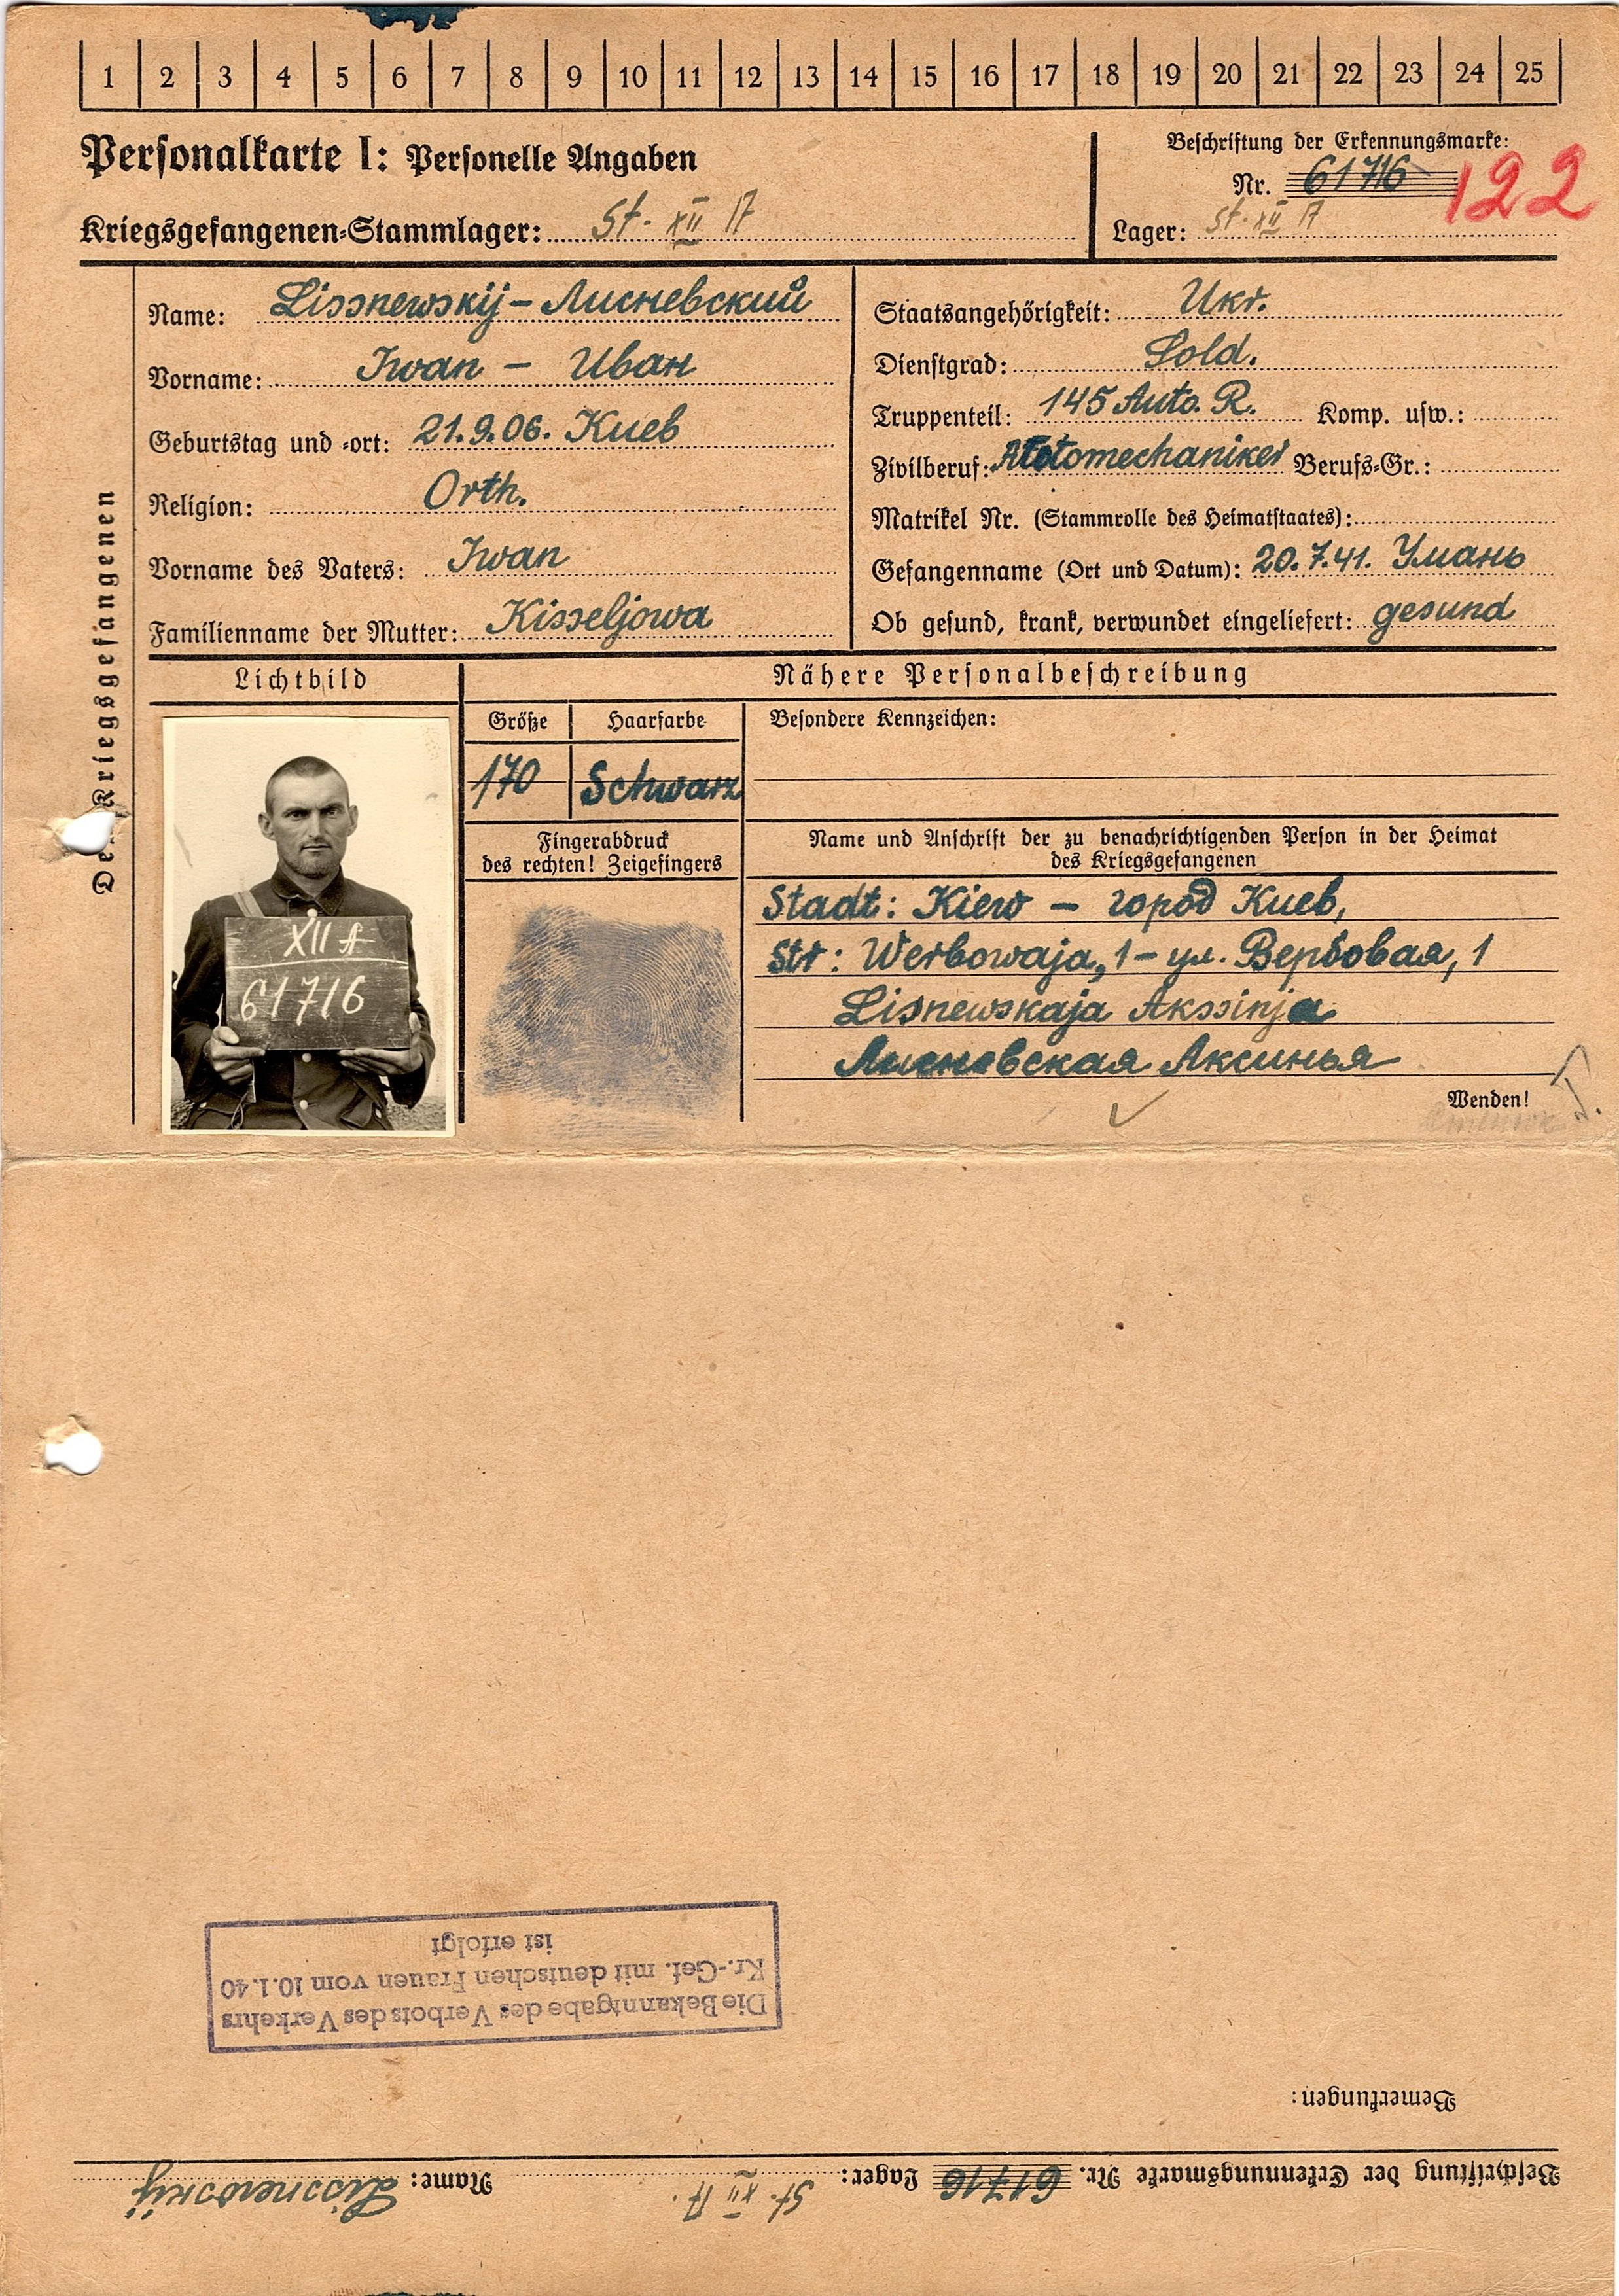 1 2 3 4 5 6 7 8 9 10 11 12 13 14 15 16 17 18 19 20 21 22 23 24 25
Personalkarte I: Personelle Angaben
Kriegsgefangenen-Stammlager: St. XII A
Beschriftung der Erkennungsmarke:
Nr. 61716 122
Lager: St. XII A
Des Kriegsgefangenen
Name: Lissnewskij – Лисневский
Vorname: Iwan – Иван
Geburtstag und -ort: 21.9.06. Киев
Religion: Orth.
Vorname des Vaters: Iwan
Familienname der Mutter: Kisseljowa
Staatsangehörigkeit: Ukr.
Dienstgrad: Sold.
Truppenteil: 145 Auto. R. Komp. usw.:
Zivilberuf: Automechaniker Berufs-Gr.:
Matrikel Nr. (Stammrolle des Heimatstaates):
Gefangenname (Ort und Datum): 20.7.41. Умань
Ob gesund, krank, verwundet eingeliefert: gesund
Lichtbild
XII A
61716
Nähere Personalbeschreibung
Größe Haarfarbe
170 Schwarz
Besondere Kennzeichen:
Fingerabdruck
des rechten! Zeigefingers
Name und Anschrift der zu benachrichtigenden Person in der Heimat
des Kriegsgefangenen
Stadt: Kiew – город Киев,
Str: Werbowaja, 1 – ул. Вербовая, 1
Lisnewskaja Akssinja
Лисневская Аксинья
Wenden!
Die Bekanntgabe des Verbots des Verkehrs
Kr.-Gef. mit deutschen Frauen vom 10.1.40
ist erfolgt
Bemerkungen:
Beschriftung der Erkennungsmarke Nr. 61716 Lager: St. XII A. Name: Lissnewskij